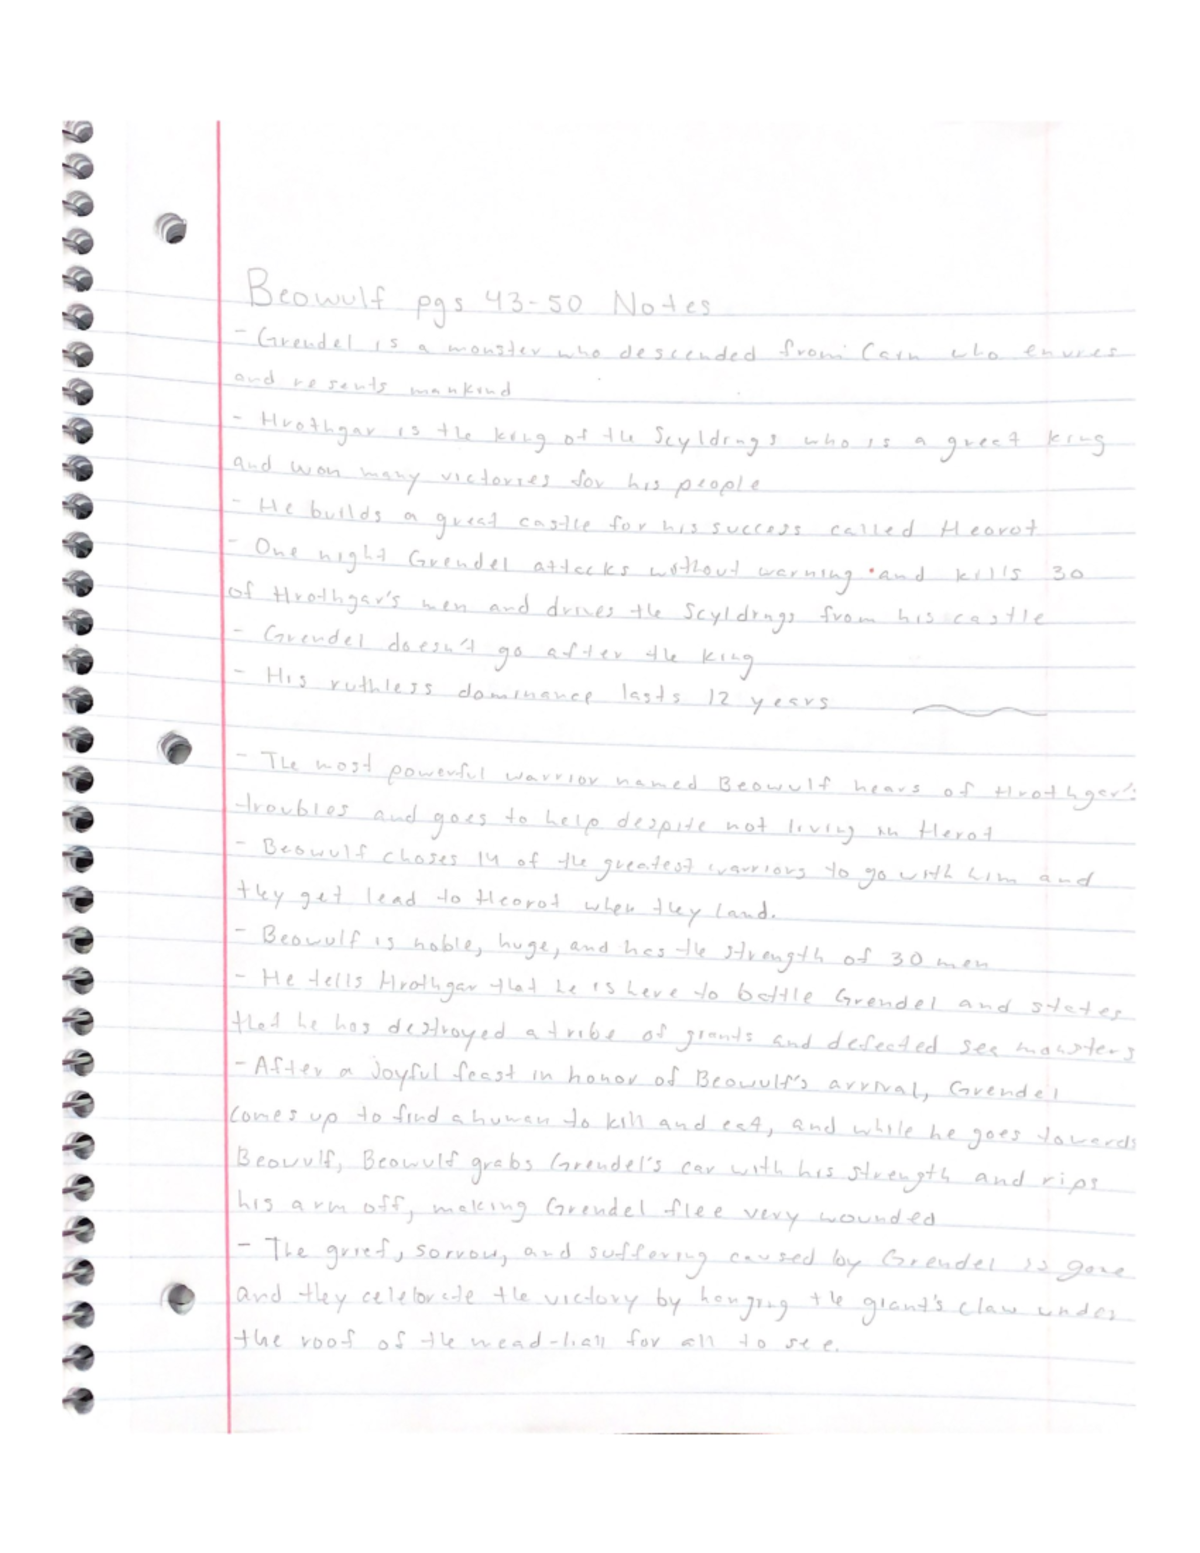 Beowulf pgs 43-50 Notes
- Grendel is a monster who descended from Cain who envies
and resents mankind
- Hrothgar is the king of the Scyldings who is a great king
and won many victories for his people
- He builds a great castle for his success called Heorot
- One night Grendel attacks without warning and kills 30
of Hrothgar's men and drives the Scyldings from his castle
- Grendel doesn't go after the king
- His ruthless dominance lasts 12 years
- The most powerful warrior named Beowulf hears of Hrothgar's
troubles and goes to help despite not living in Herot
- Beowulf choses 14 of the greatest warriors to go with him and
they get lead to Heorot when they land.
- Beowulf is noble, huge, and has the strength of 30 men
- He tells Hrothgar that he is here to battle Grendel and states
that he has destroyed a tribe of giants and defeated sea monsters
- After a joyful feast in honor of Beowulf's arrival, Grendel
comes up to find a human to kill and eat, and while he goes towards
Beowulf, Beowulf grabs Grendel's car with his strength and rips
his arm off, making Grendel flee very wounded
- The grief, sorrow, and suffering caused by Grendel is gone
and they celebrate the victory by hanging the giant's claw under
the roof of the mead-hall for all to see.